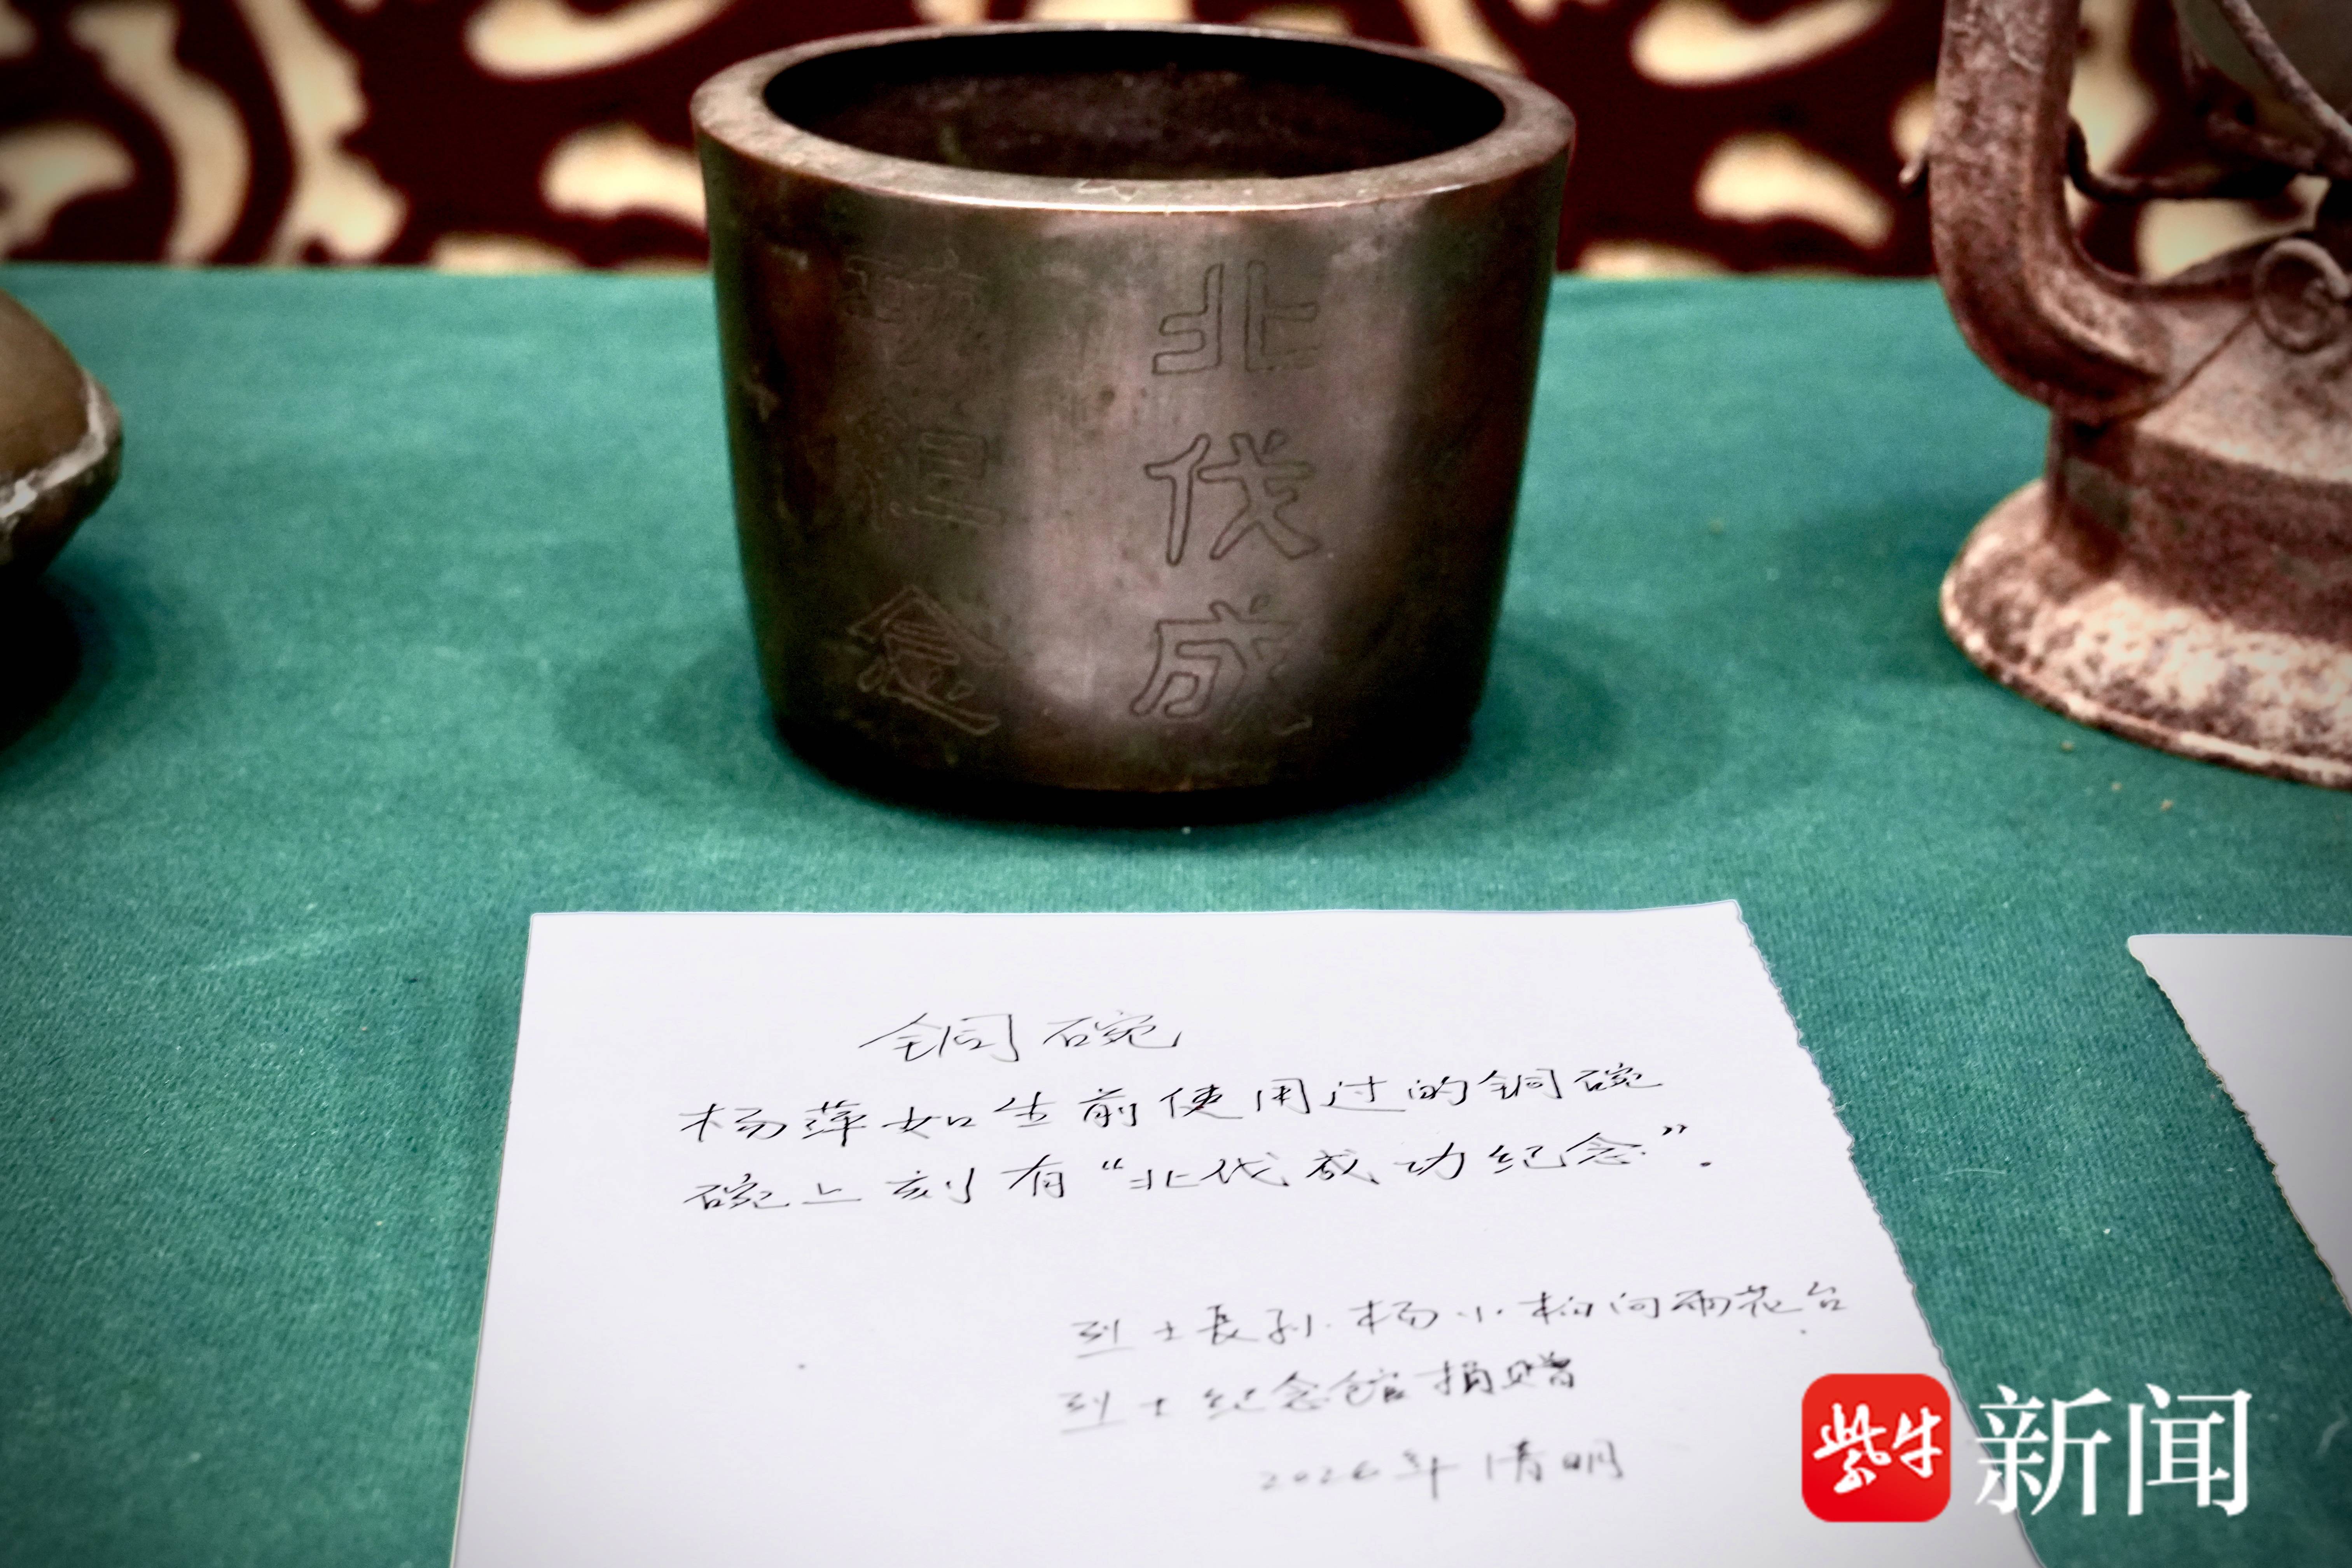 北伐成
念
铜碗
杨萍如生前使用过的铜碗
碗上刻有“北伐成功纪念”.
烈士長孙.杨小柏向雨花台
烈士纪念馆捐赠
2026年清明
紫牛新闻